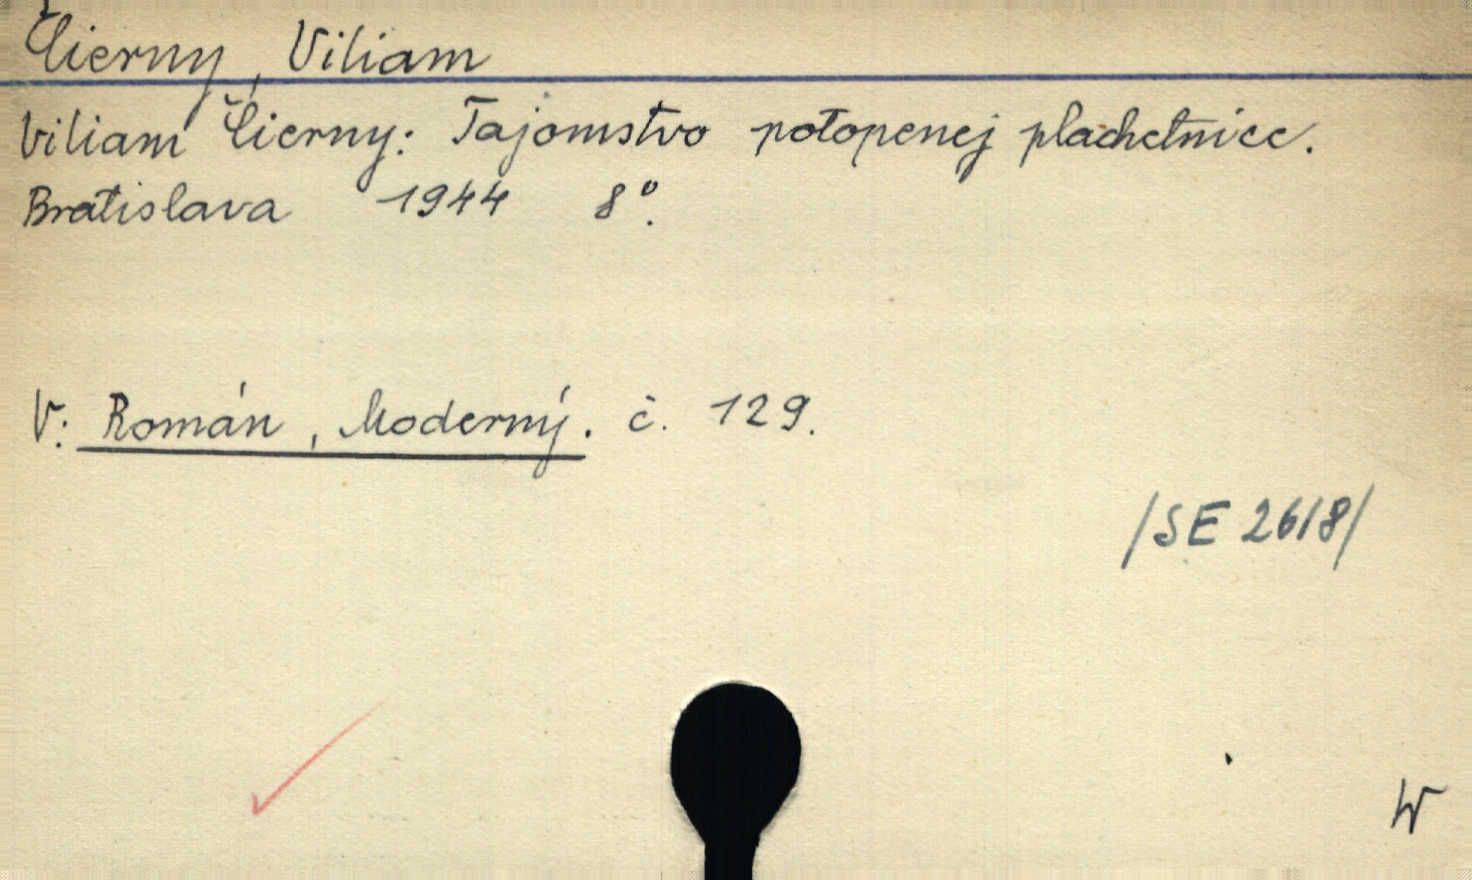 Čierny, Viliam
Viliam Čierny: Tajomstvo potopenej plachetnice.
Bratislava 1944 8°.
V: Román, Moderný. č. 129.
/SE 2618/
W